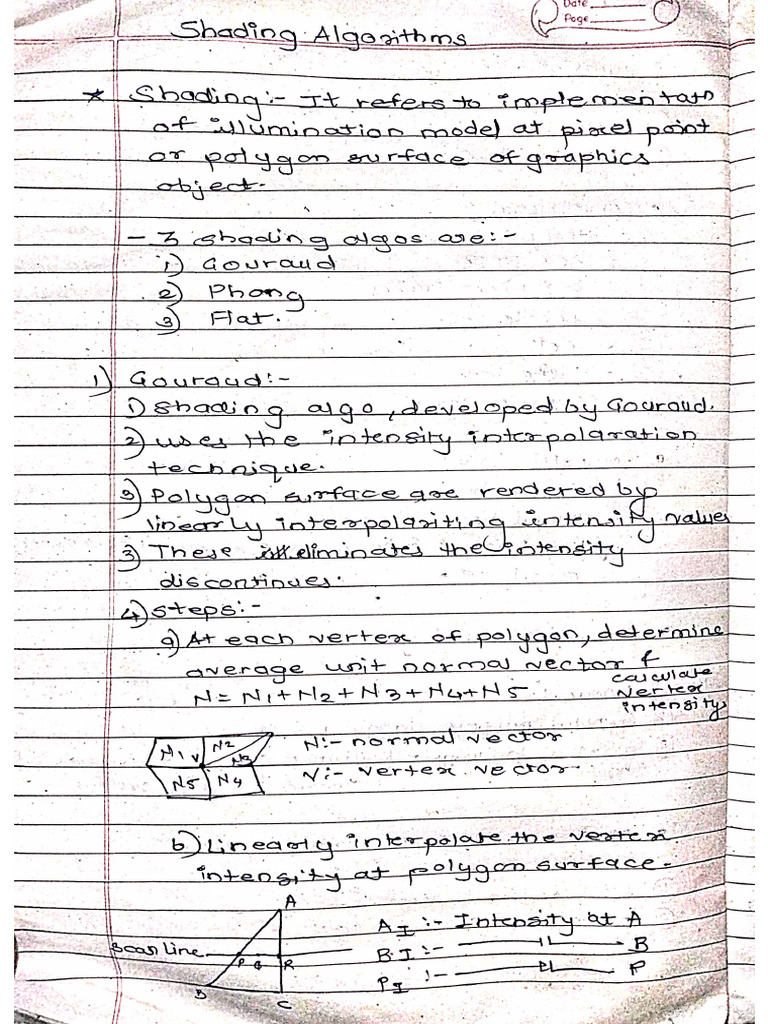 Date
Page
Shading Algorithms
* Shading:- It refers to implementatn
of illumination model at pixel point
or polygon surface of graphics
object.
- 3 shading algos are:-
1) Gouraud
2) Phong
3) Flat.
1) Gouraud:-
1) shading algo, developed by Gouraud.
2) uses the intensity interpolaration
technique.
3) Polygon surface are rendered by
linearly interpolariting intensity values
3) These eliminates the intensity
discontinues.
4) steps:-
a) At each vertex of polygon, determine
average unit normal vector &
calculate
N = N1 + N2 + N3 + N4 + N5
vertex
intensitys
N1 V N2 N3
N5 N4
N:- normal vector
V:- vertex vector
b) Linearly interpolate the vertex
intensity at polygon surface.
A
AI :- Intensity at A
scanline
BI :- —— 11 —— B
P Q R
PI :- —— 11 —— P
B
C